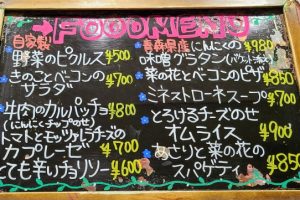 →FOOD MENU
自家製
野菜のピクルス ¥500
きのことベーコンの
サラダ ¥700
牛肉のカルパッチョ ¥800
(にんにくチップのせ)
トマトとモッツァレラチーズの
カプレーゼ ¥700
とても辛いチョリソー ¥600
青森県産にんにくの ¥980
味噌グラタン(バケット添え)
菜の花とベーコンのピザ ¥850
ミネストローネスープ ¥700
とろけるチーズのせ
オムライス ¥900
あさりと菜の花の
スパゲティ ¥850